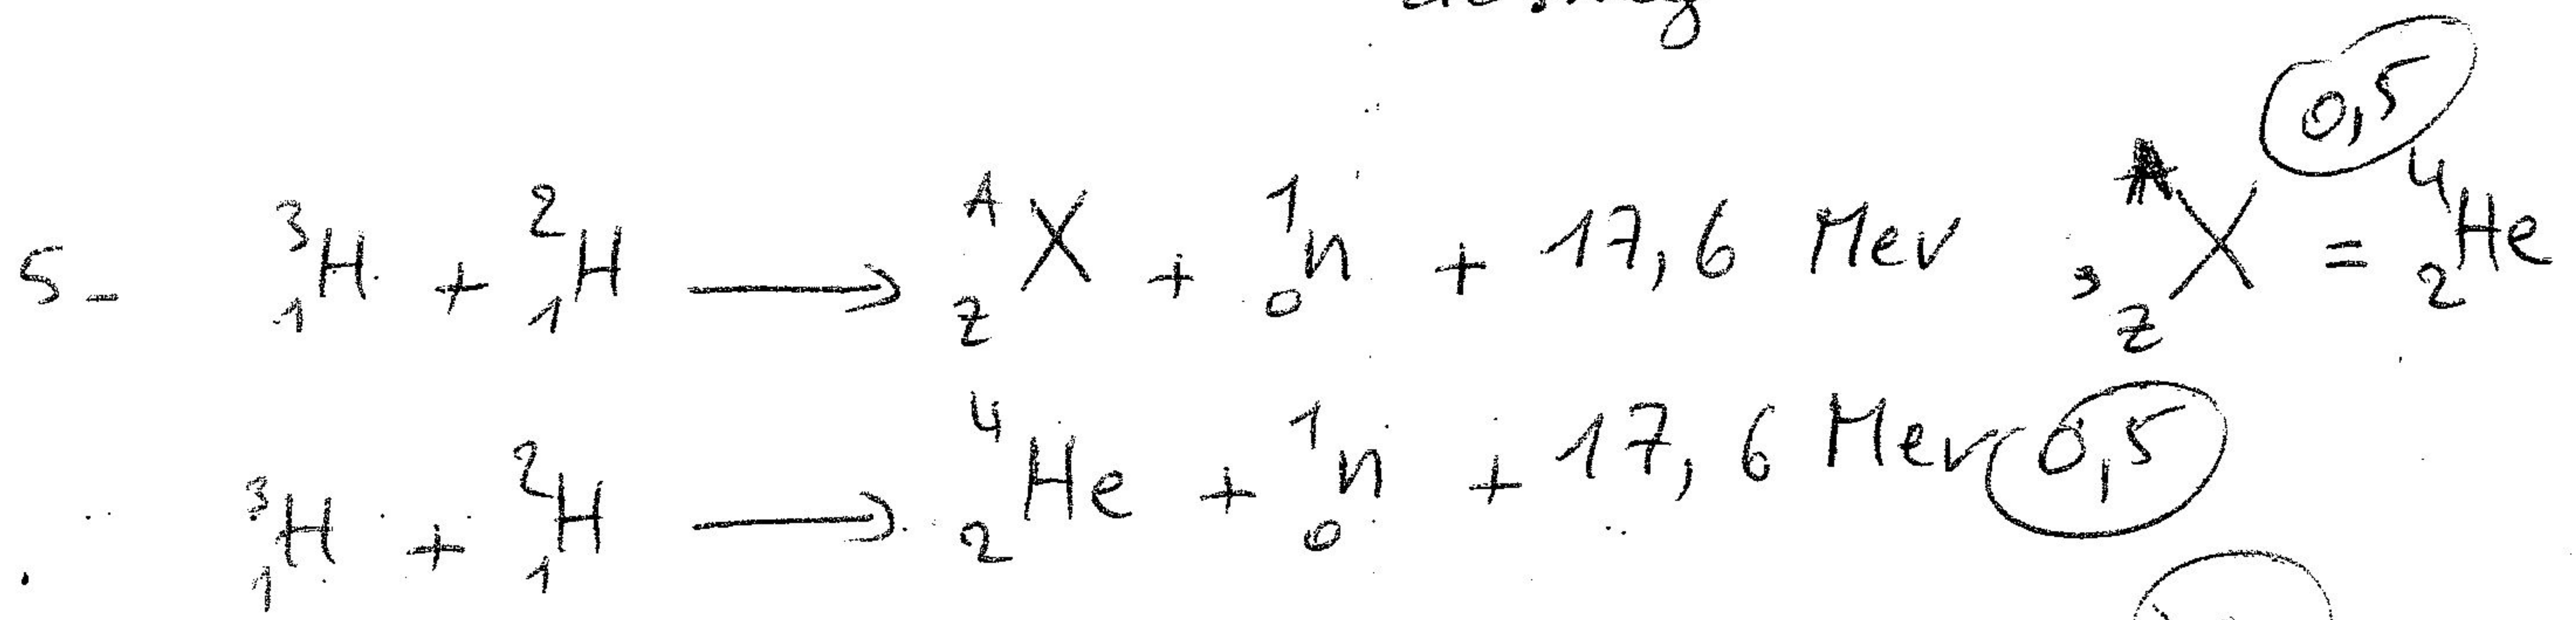 5- ³₁H + ²₁H ⟶ ᴬ_Z X + ¹₀n + 17,6 Mev ; ᴬ_Z X = ⁴₂He 0,5
³₁H + ²₁H ⟶ ⁴₂He + ¹₀n + 17,6 Mev 0,5